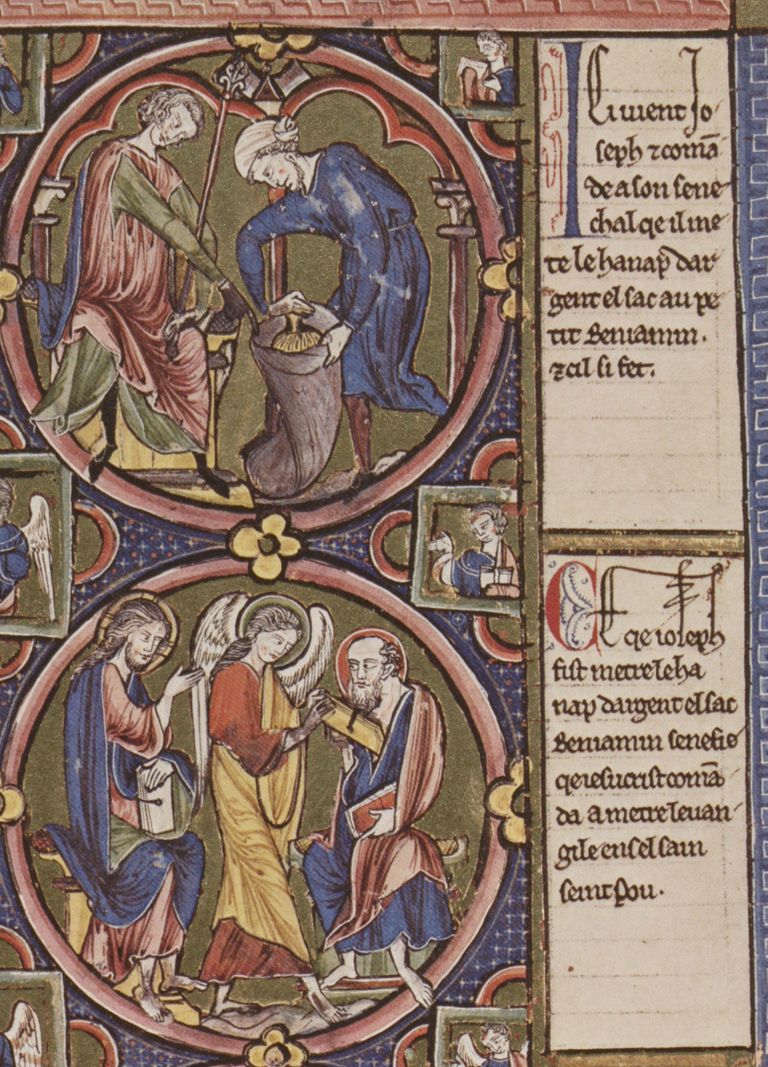 Ici vient Jo
seph ⁊ comā
de a son sene
chal qe il me
te le hanap dar
gent el sac au pe
tit Beniamin.
⁊ cil si fet.
Ce qe ioseph
fist metre le ha
nap dargent el sac
Beniamin senefie
qe iesucrist comā
da a metre leuan
gile en sel sain
seint Pou.